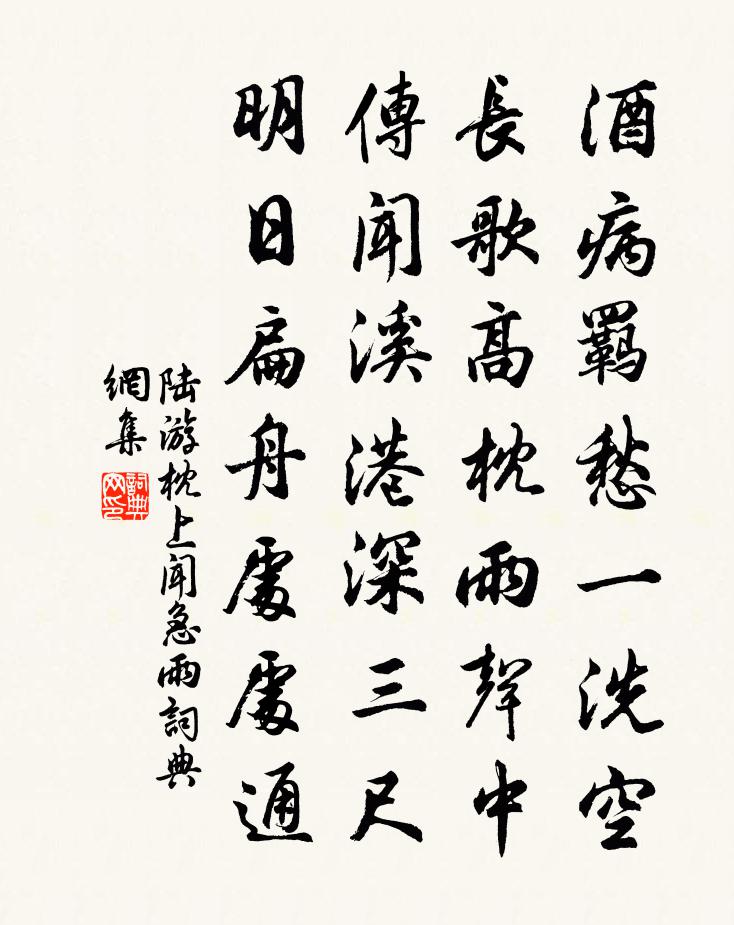 酒病羈愁一洗空
長歌高枕雨聲中
傳聞溪港深三尺
明日扁舟處處通
陆游枕上聞急雨詞典
網集
詞典
网印